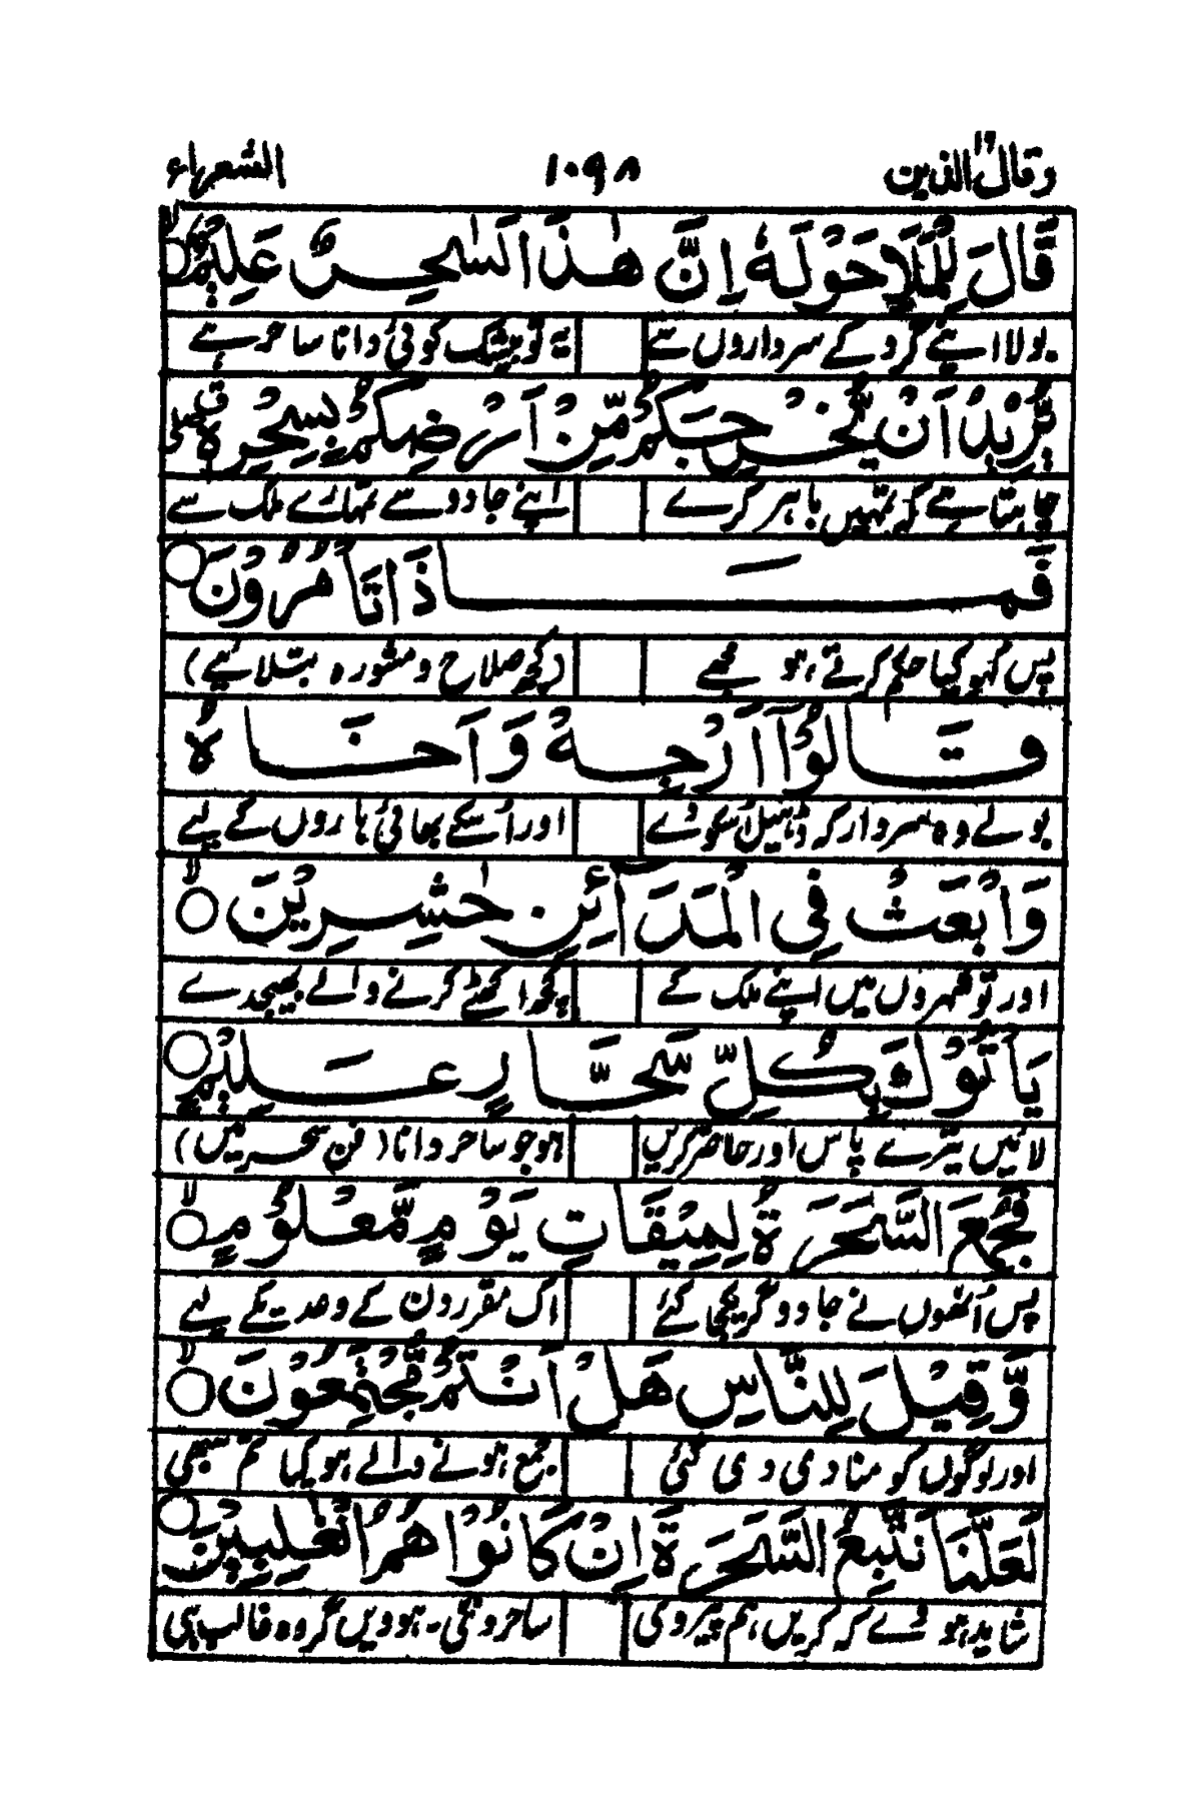 وقال الذین ١٩ ۱۰۹۸ الشعراء
قَالَ لِلْمَلَاِ حَوْلَهٗۤ اِنَّ هٰذَا لَسٰحِرٌ عَلِيْمٌ ۙ
بولا اپنے گرد کے سرداروں سے یہ تو بیشک کوئی دانا ساحر ہے
يُّرِيْدُ اَنْ يُّخْرِجَكُمْ مِّنْ اَرْضِكُمْ بِسِحْرِهٖ ۖق
چاہتا ہے کہ تمہیں باہر کرے اپنے جادو سے تمہارے ملک سے
فَمَاذَا تَاْمُرُوْنَ
پس کہو کیا حکم کرتے ہو مجھے (کچھ صلاح و مشورہ بتلائیے)
قَالُوْۤا اَرْجِهْ وَاَخَاهُ
بولے وہ سردار کہ ڈھیل اسکو دے اور اُسکے بھائی ہاروں کے لیے
وَابْعَثْ فِى الْمَدَآئِنِ حٰشِرِيْنَ ۙ
اور تو شہروں میں اپنے ملک کے کچھ اکھٹے کرنے والے بھیجدے
يَاْتُوْكَ بِكُلِّ سَحَّارٍ عَلِيْمٍ
لائیں تیرے پاس اور حاضر کریں ہو جو ساحر دانا (فن سحر میں)
فَجُمِعَ السَّحَرَةُ لِمِيْقَاتِ يَوْمٍ مَّعْلُوْمٍ ۙ
پس اُنھوں نے جادوگر یکجا کئے اک مقرر دن کے وعدے کے لیے
وَّقِيْلَ لِلنَّاسِ هَلْ اَنْتُمْ مُّجْتَمِعُوْنَ ۙ
اور لوگوں کو منادی دی گئی جمع ہونے والے ہو کیا تم سبھی
لَعَلَّنَا نَتَّبِعُ السَّحَرَةَ اِنْ كَانُوْا هُمُ الْغٰلِبِيْنَ
شاید ہووے کہ کریں ہم پیروی ساحروں کی۔ ہوویں گروہ غالب ہی